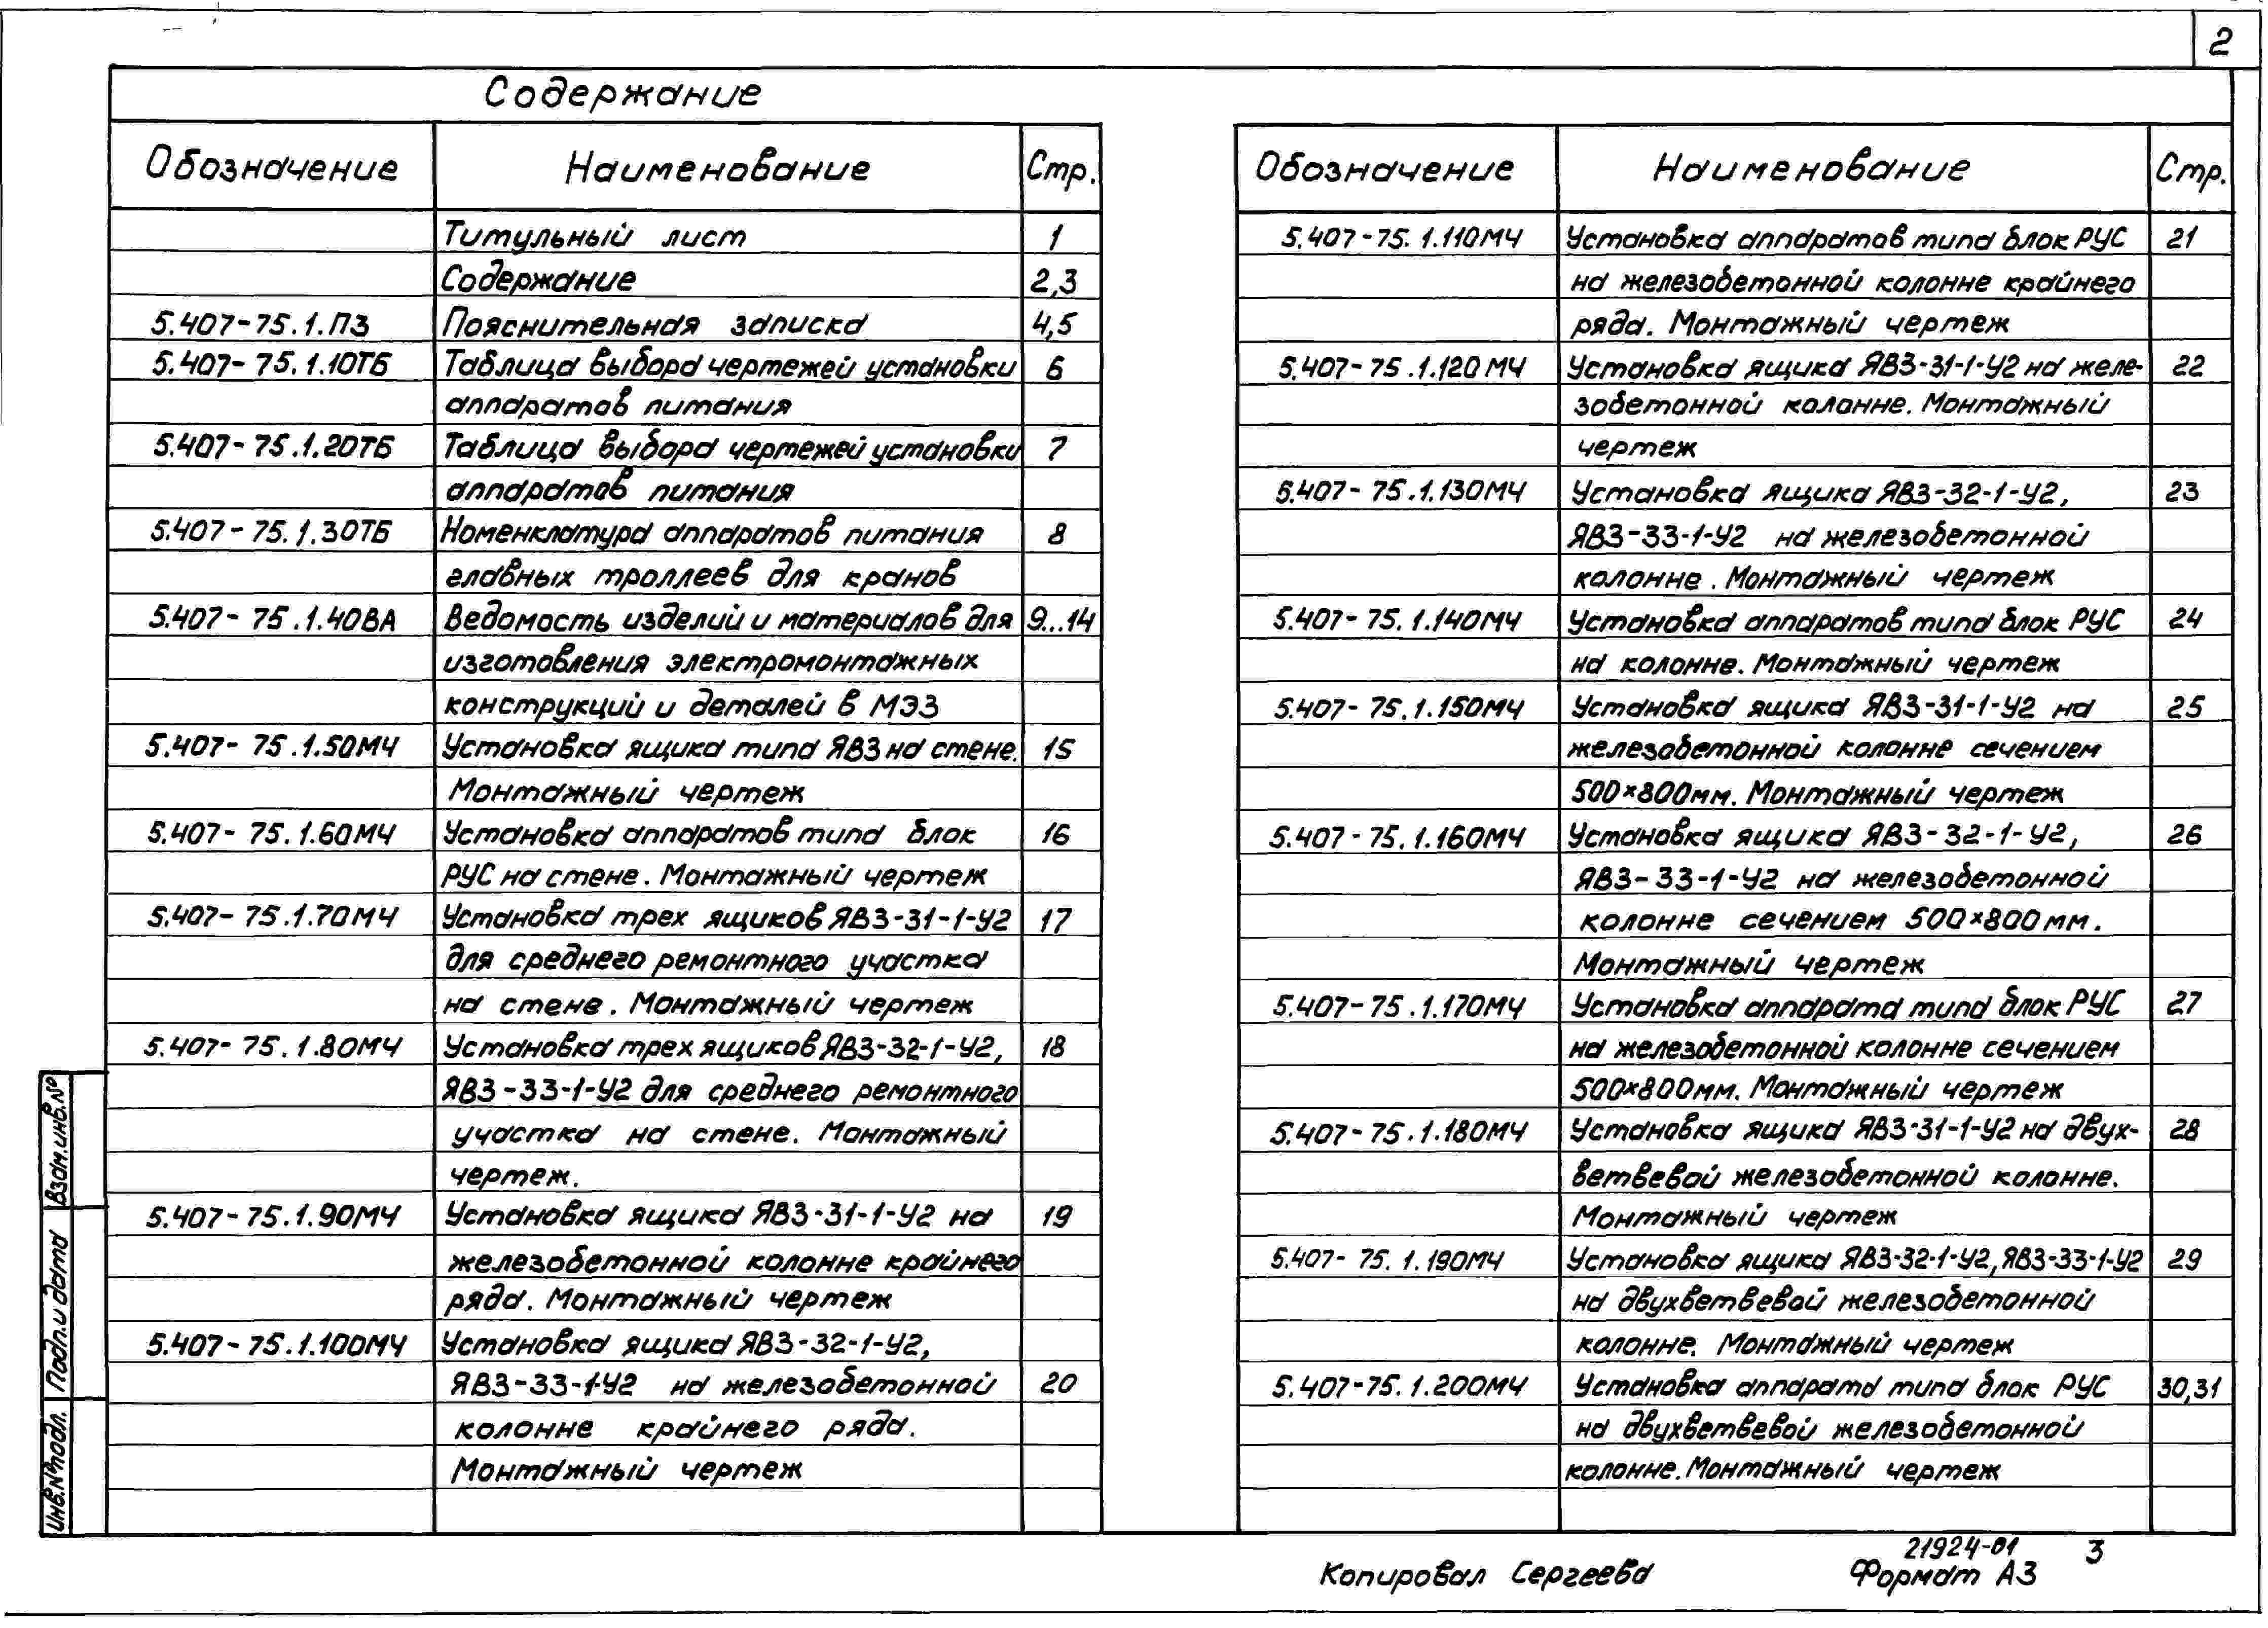 2
Содержание
Обозначение Наименование Стр.
Титульный лист 1
Содержание 2,3
5.407-75.1.ПЗ Пояснительная записка 4,5
5.407-75.1.10ТБ Таблица выбора чертежей установки 6
аппаратов питания
5.407-75.1.20ТБ Таблица выбора чертежей установки 7
аппаратов питания
5.407-75.1.30ТБ Номенклатура аппаратов питания 8
главных троллеев для кранов
5.407-75.1.40ВА Ведомость изделий и материалов для 9...14
изготовления электромонтажных
конструкций и деталей в МЭЗ
5.407-75.1.50МЧ Установка ящика типа ЯВЗ на стене. 15
Монтажный чертеж
5.407-75.1.60МЧ Установка аппаратов типа блок 16
РУС на стене. Монтажный чертеж
5.407-75.1.70МЧ Установка трех ящиков ЯВЗ-31-1-У2 17
для среднего ремонтного участка
на стене. Монтажный чертеж
5.407-75.1.80МЧ Установка трех ящиков ЯВЗ-32-1-У2, 18
ЯВЗ-33-1-У2 для среднего ремонтного
участка на стене. Монтажный
чертеж.
5.407-75.1.90МЧ Установка ящика ЯВЗ-31-1-У2 на 19
железобетонной колонне крайнего
ряда. Монтажный чертеж
5.407-75.1.100МЧ Установка ящика ЯВЗ-32-1-У2,
ЯВЗ-33-1-У2 на железобетонной 20
колонне крайнего ряда.
Монтажный чертеж
Обозначение Наименование Стр.
5.407-75.1.110МЧ Установка аппаратов типа блок РУС 21
на железобетонной колонне крайнего
ряда. Монтажный чертеж
5.407-75.1.120МЧ Установка ящика ЯВЗ-31-1-У2 на желе- 22
зобетонной колонне. Монтажный
чертеж
5.407-75.1.130МЧ Установка ящика ЯВЗ-32-1-У2, 23
ЯВЗ-33-1-У2 на железобетонной
колонне. Монтажный чертеж
5.407-75.1.140МЧ Установка аппаратов типа блок РУС 24
на колонне. Монтажный чертеж
5.407-75.1.150МЧ Установка ящика ЯВЗ-31-1-У2 на 25
железобетонной колонне сечением
500×800мм. Монтажный чертеж
5.407-75.1.160МЧ Установка ящика ЯВЗ-32-1-У2, 26
ЯВЗ-33-1-У2 на железобетонной
колонне сечением 500×800мм.
Монтажный чертеж
5.407-75.1.170МЧ Установка аппарата типа блок РУС 27
на железобетонной колонне сечением
500×800мм. Монтажный чертеж
5.407-75.1.180МЧ Установка ящика ЯВЗ-31-1-У2 на двух- 28
ветвевой железобетонной колонне.
Монтажный чертеж
5.407-75.1.190МЧ Установка ящика ЯВЗ-32-1-У2, ЯВЗ-33-1-У2 29
на двухветвевой железобетонной
колонне. Монтажный чертеж
5.407-75.1.200МЧ Установка аппарата типа блок РУС 30,31
на двухветвевой железобетонной
колонне. Монтажный чертеж
Взам.инв.№
Подп.и дата
Инв.№подл.
21924-01 3
Копировал Сергеева Формат А3